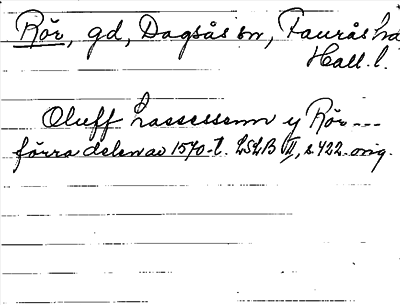 Rör, gd, Dagsås sn, Faurås hd
Hall. l.
Oluff Lassessenn y Rör ---
förra delen av 1570-t. LSLB VII, s 422. orig.